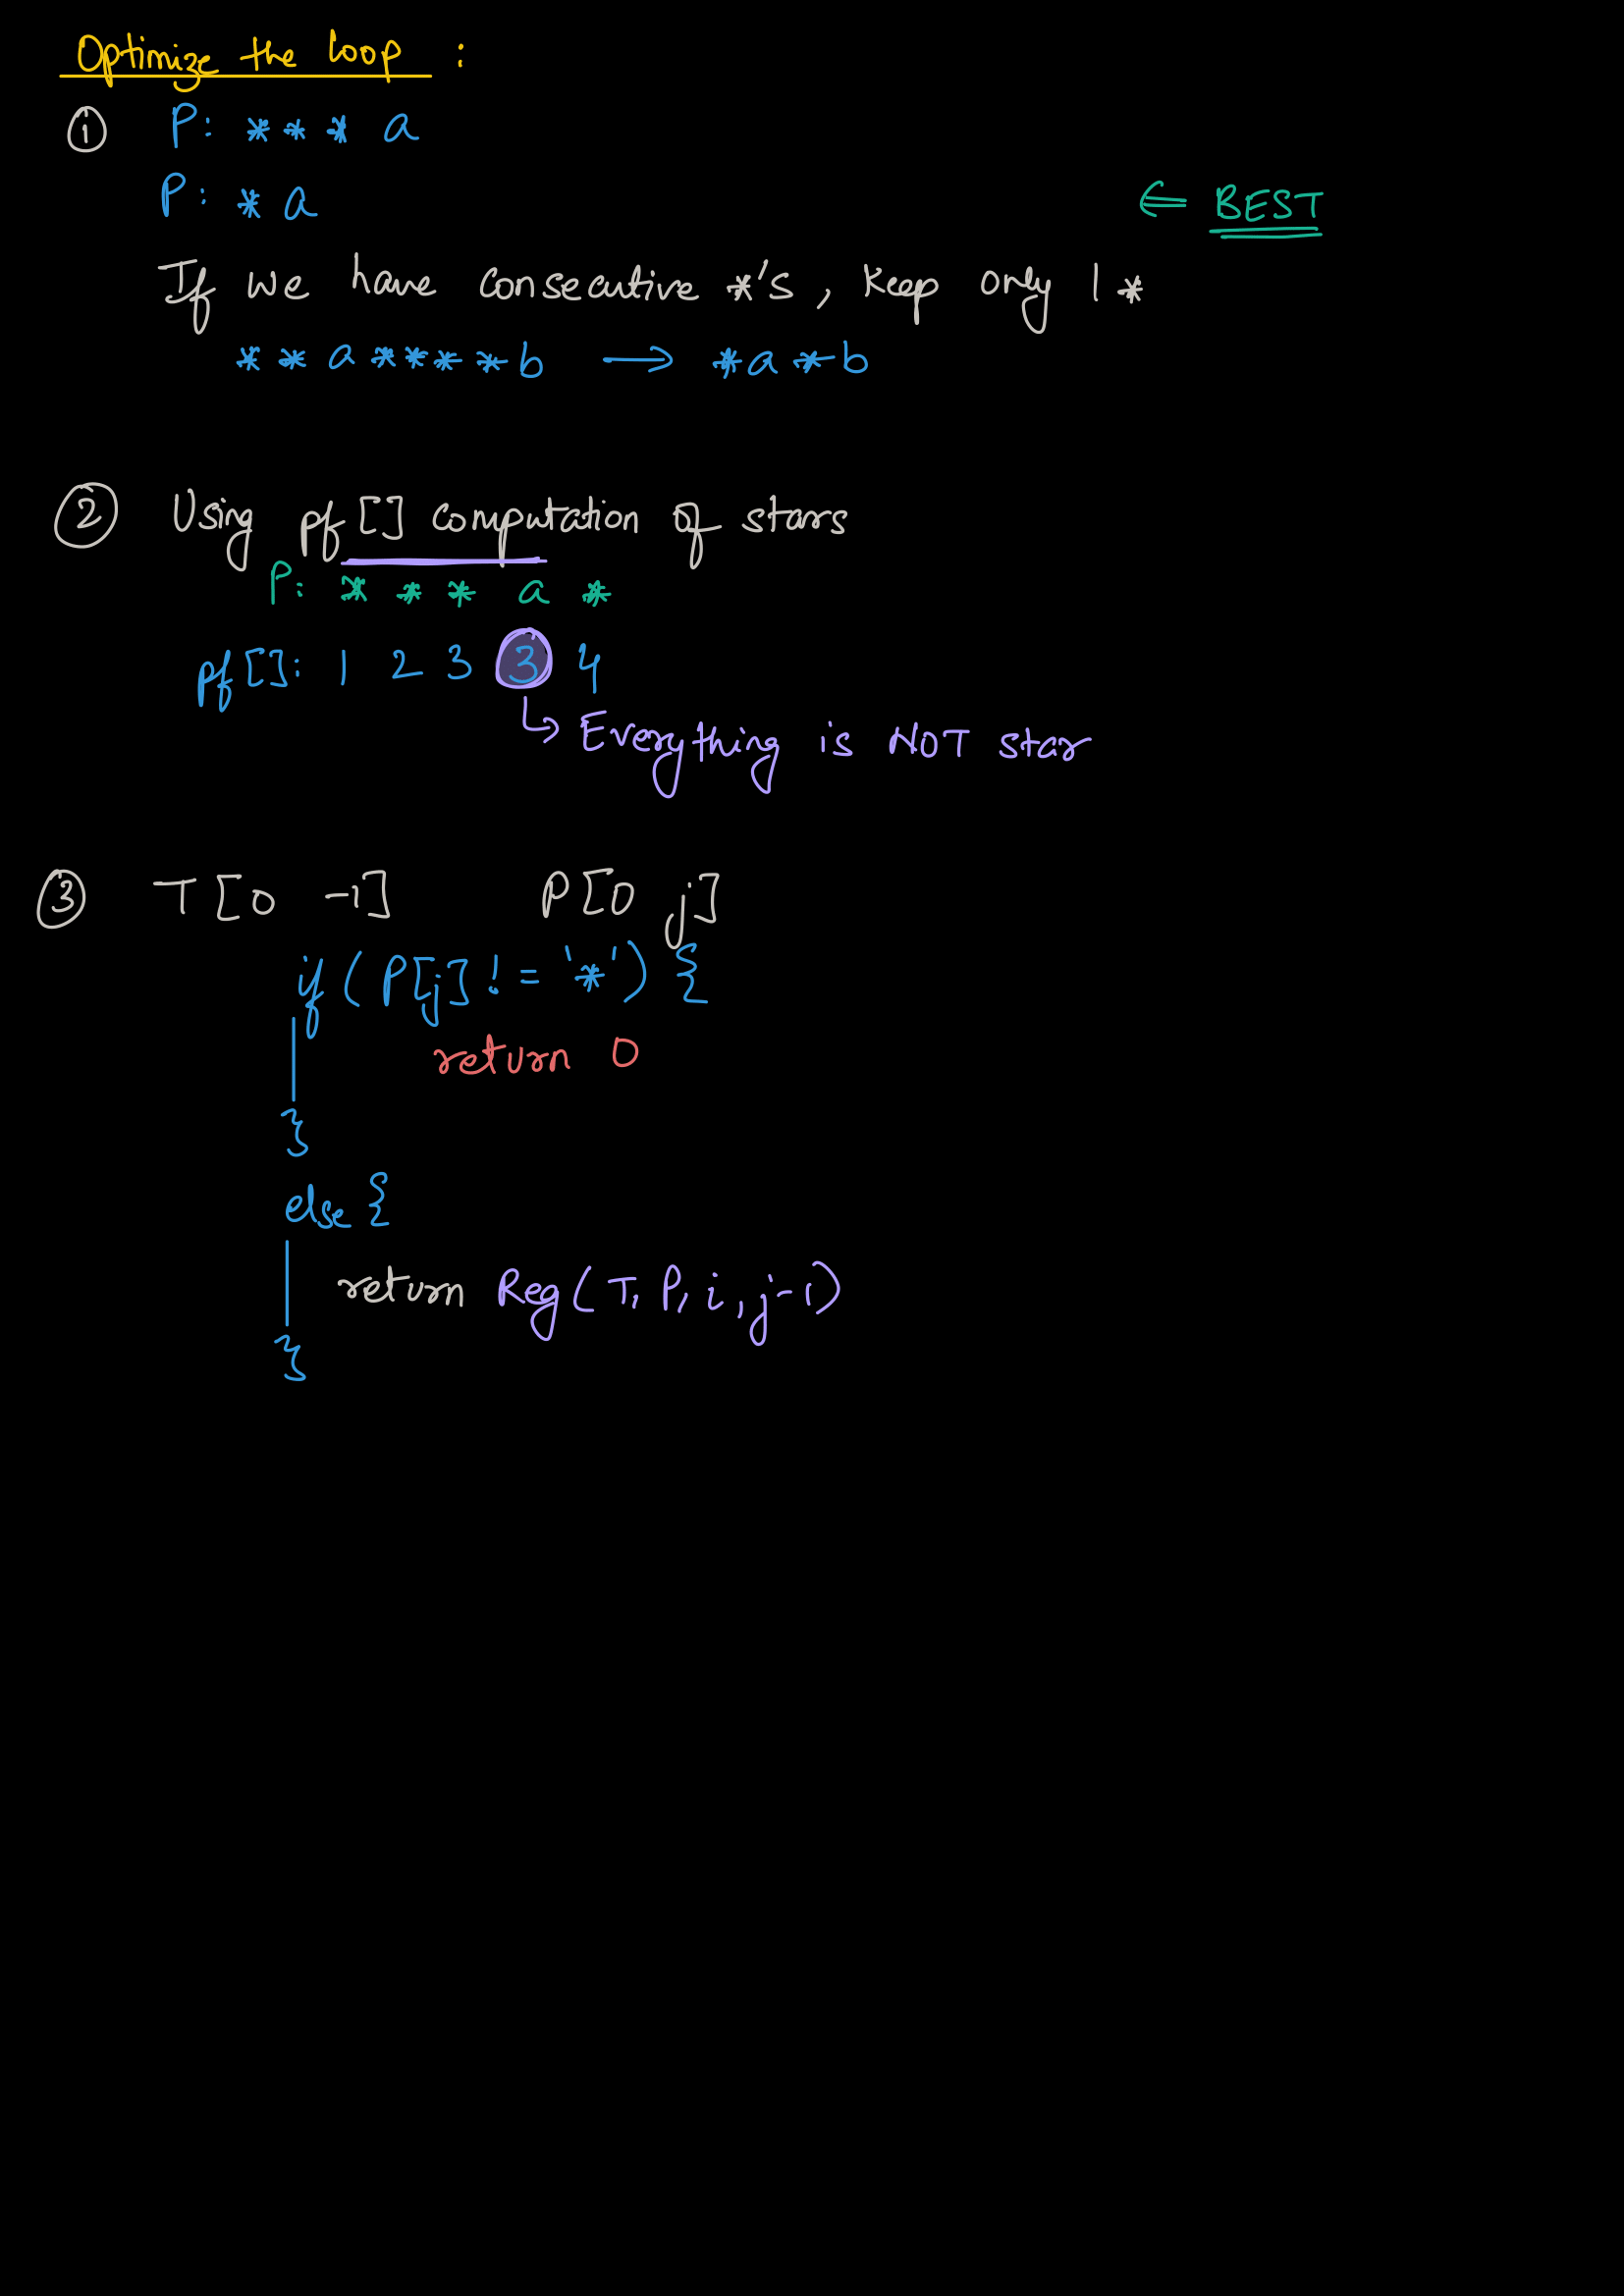 Optimize the loop :
① P: * * * a
P: * a
⇐ BEST
If we have consecutive *'s, keep only 1 *
* * a * * * * b → * a * b
② Using pf[] computation of stars
P: * * * a *
pf[]: 1 2 3 3 4
↳ Everything is NOT star
③ T[0 -1] P[0 j]
if (P[j] != '*') {
return 0
}
else {
return Reg(T, P, i, j-1)
}